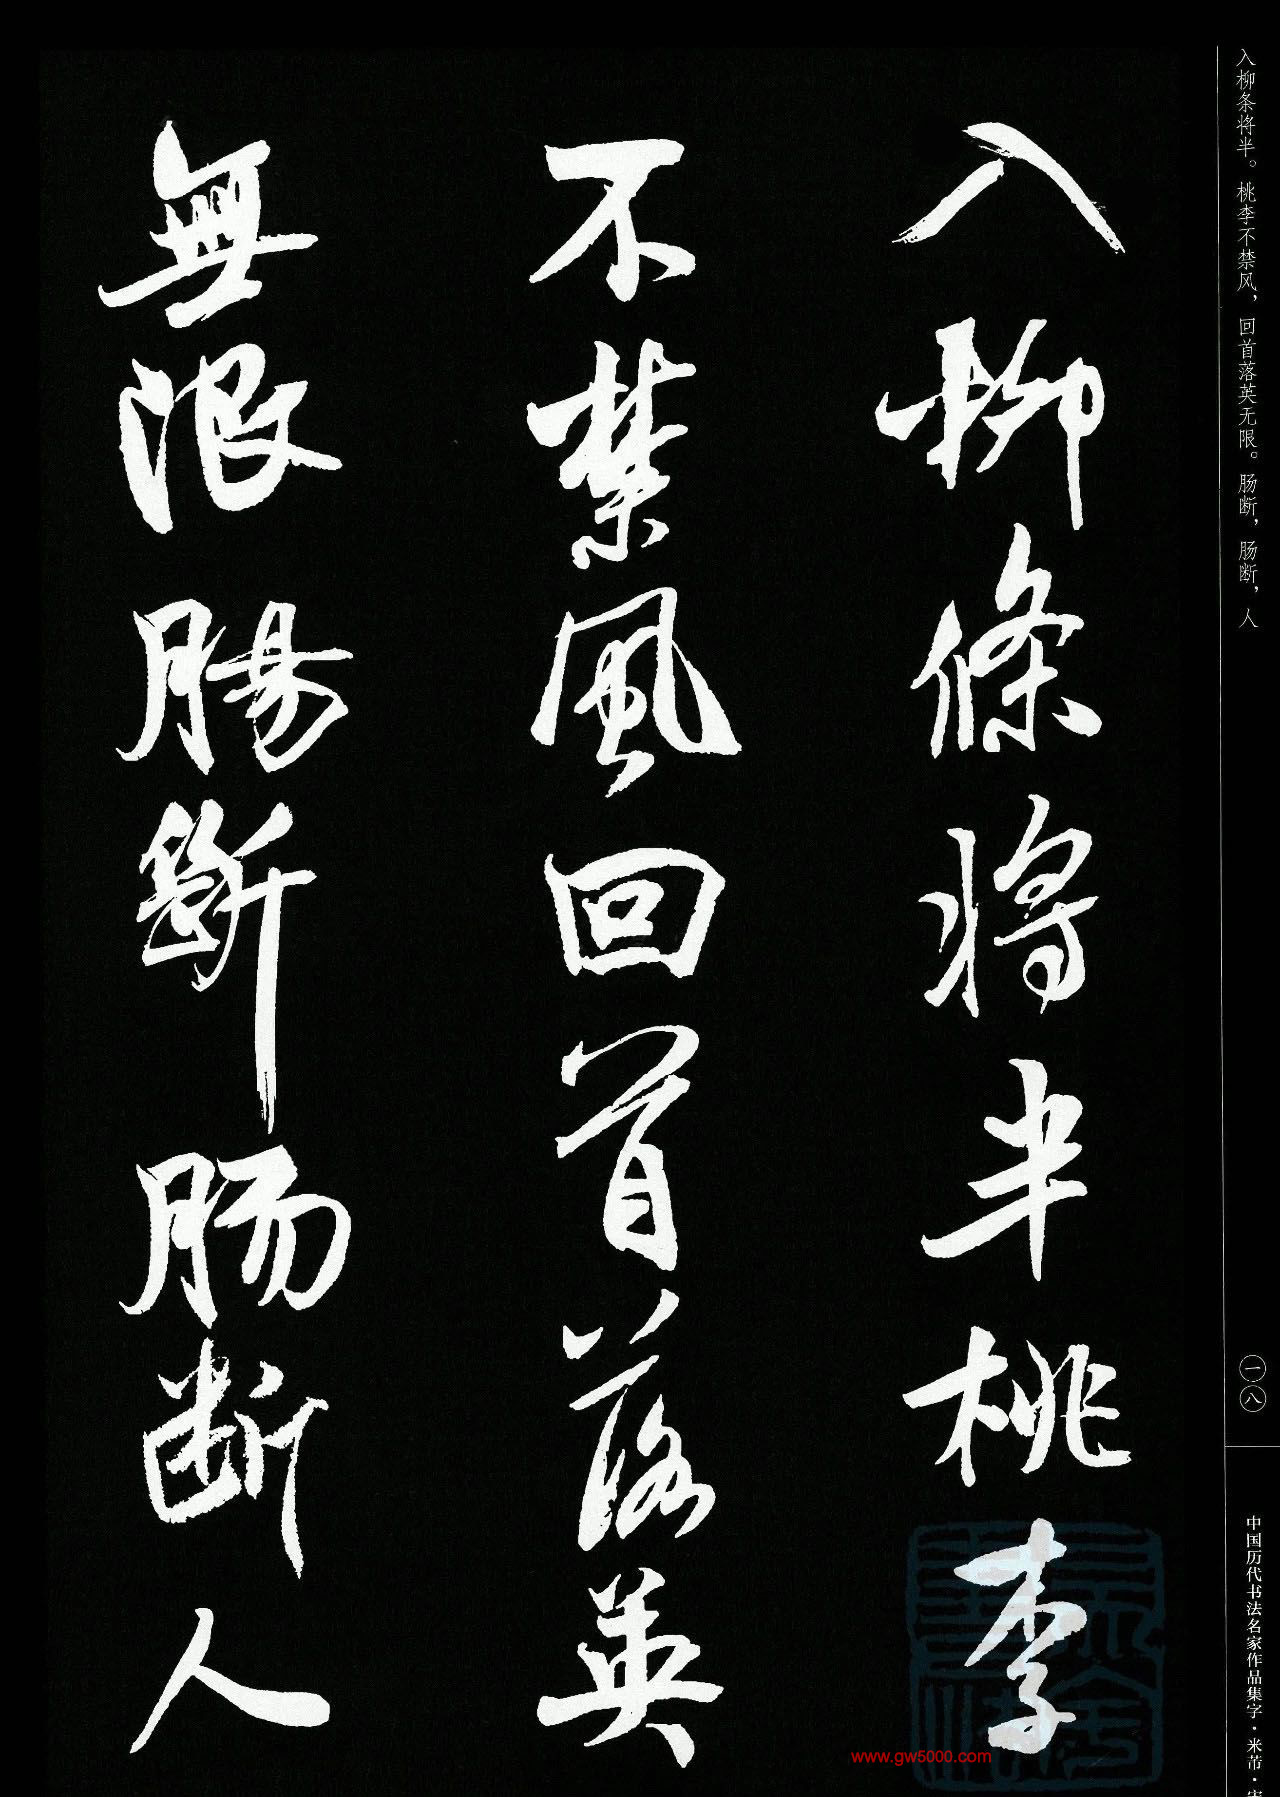 入柳條將半桃李
不禁風回首落英
無限腸斷肠断人
入柳条将半。桃李不禁风，回首落英无限。肠断，肠断，人
一八
中国历代书法名家作品集字·米芾·宋
www.gw5000.com